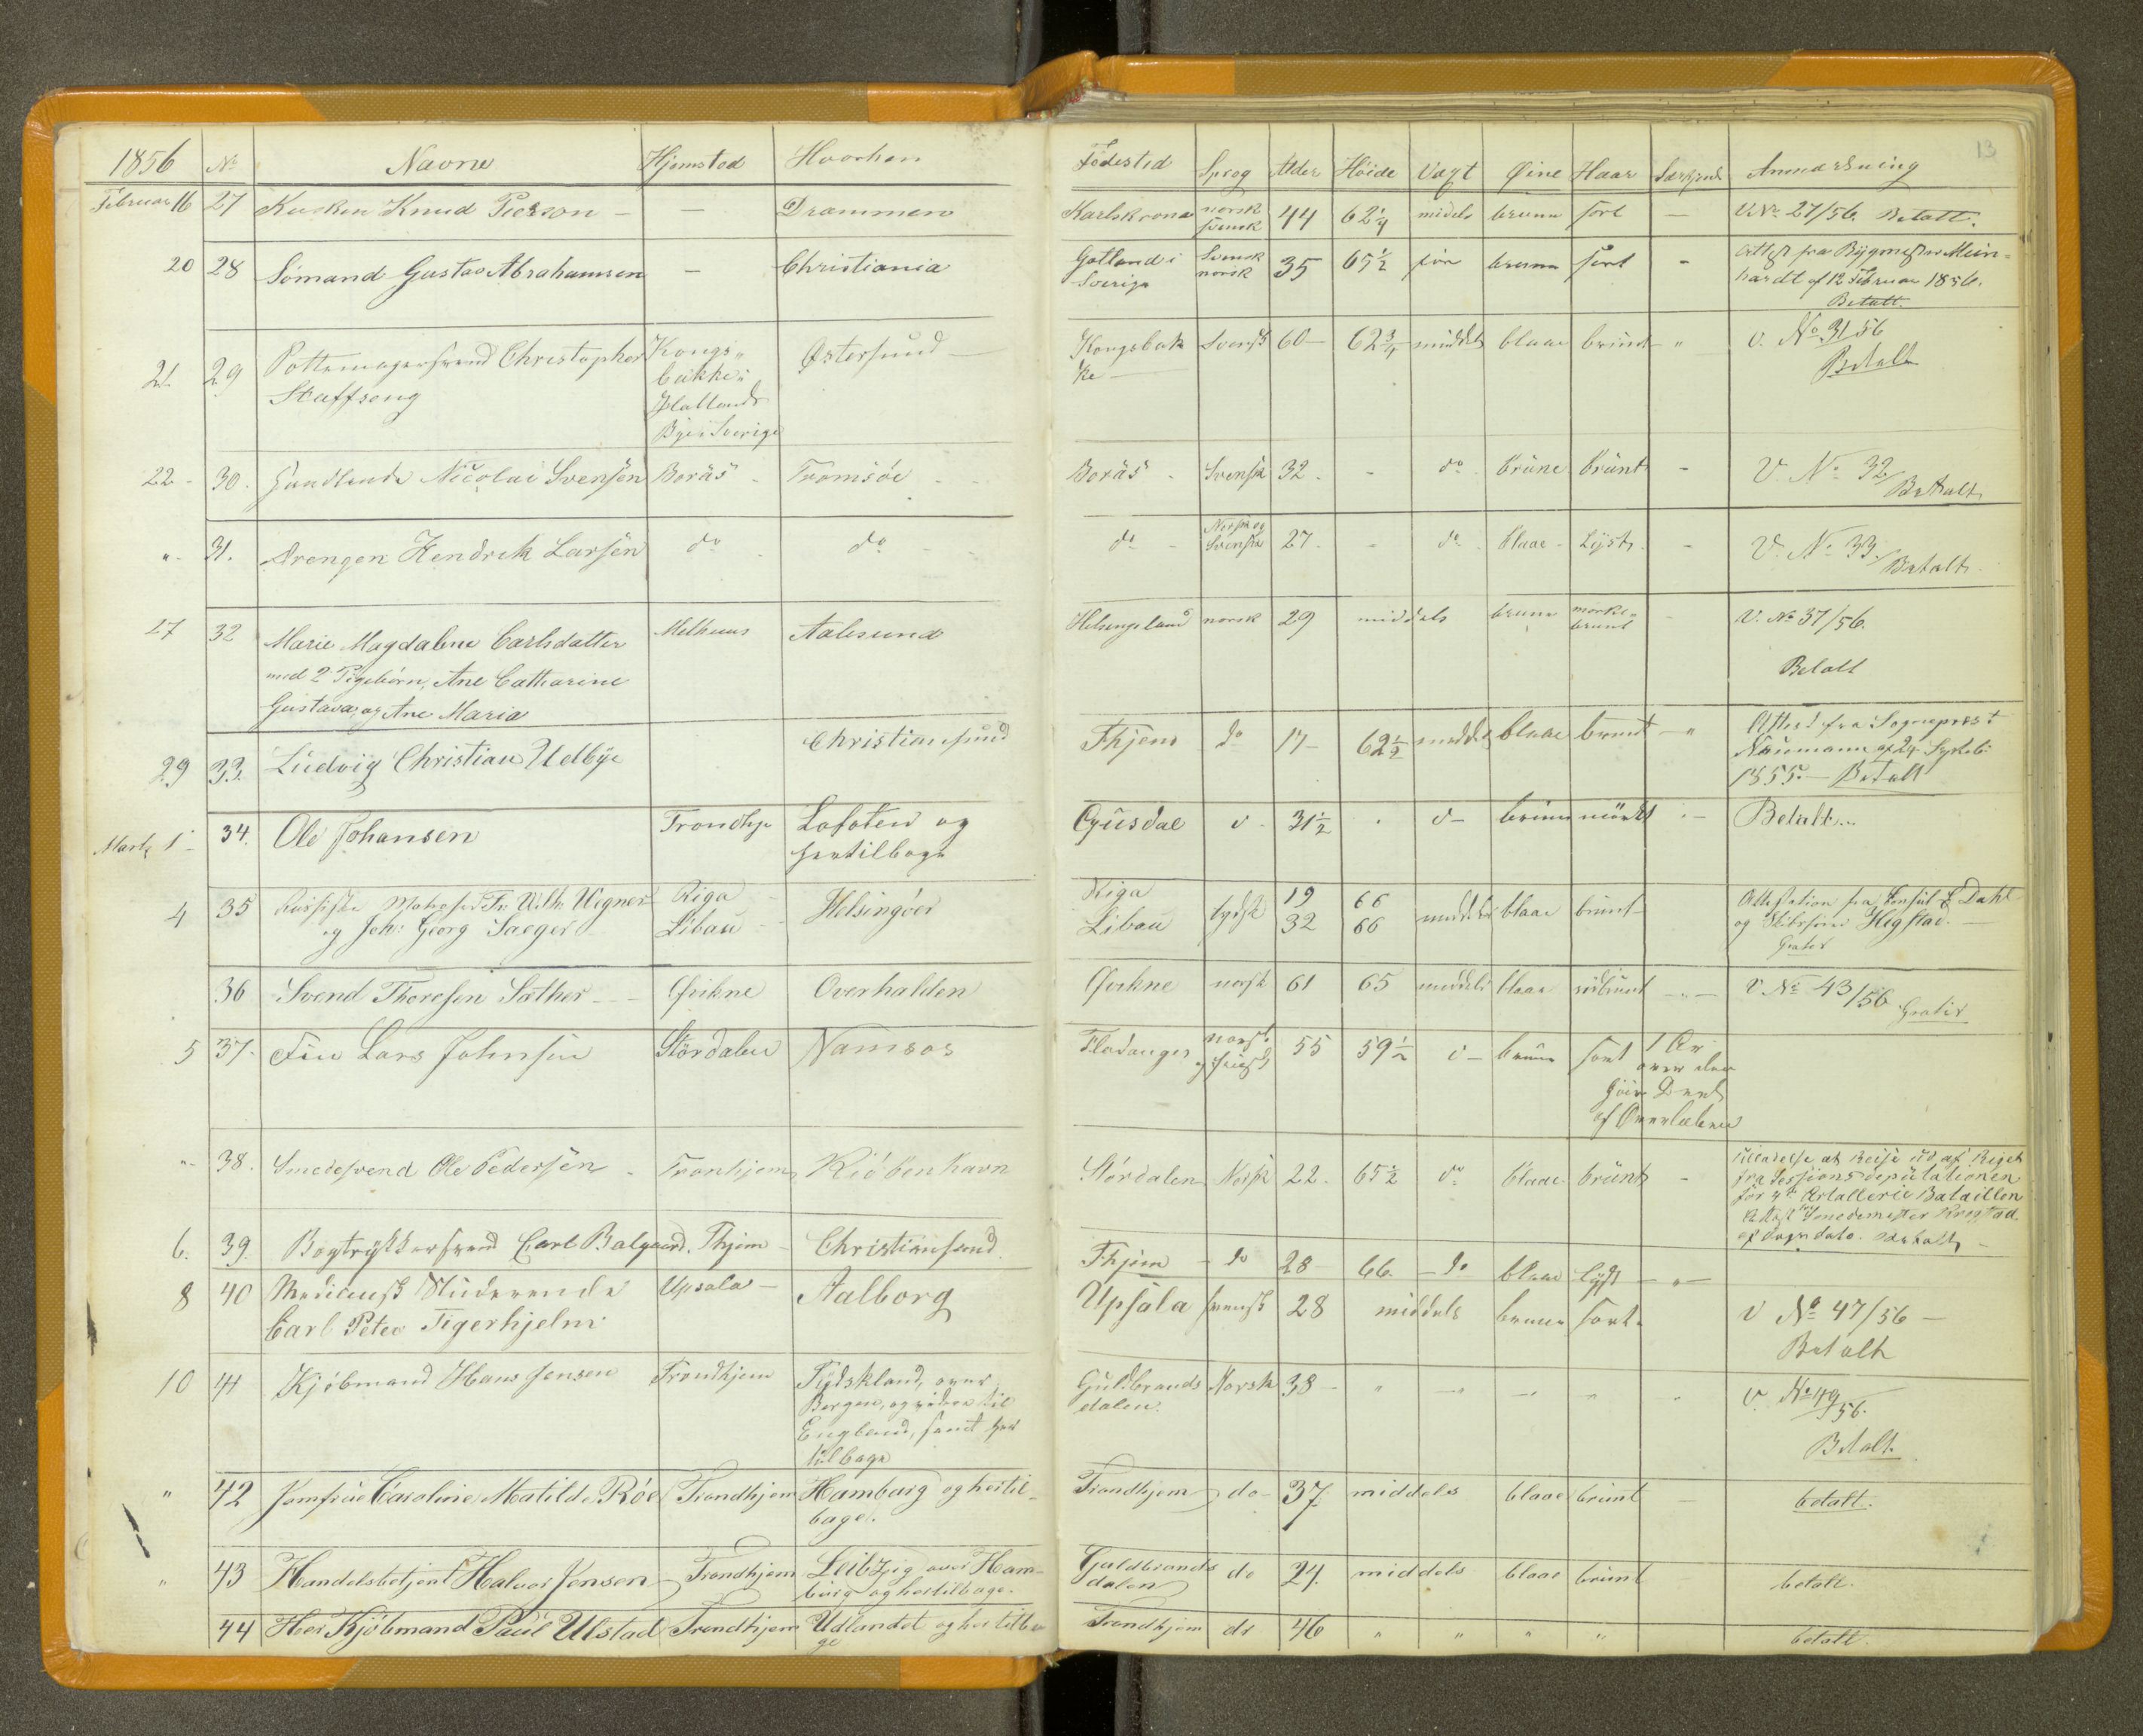 1856 No Navne Hjemsted Hvorhen Fødested Sprog Alder Höide Vægt Øine Haar Særkjende Anmærkning 13
Februar 16 27 Kusken Knud Pierson — — Drammen Karlskrona norsk svensk 44 62 1/4 middels brune sort — V. No 27/56. Betalt.
20 28 Sömand Gustav Abrahamsen — Christiania Gotland i Sverige Svensk norsk 35 65 1/2 før brune sort - Attest fra Bygmester Mein-
hardt af 12 Februar 1856.
Betalt.
21 29 Pottemagersvend Christopher Kongs„ Østersund Kongsbak Svensk 60 — 62 3/4 middels blaae brunt „ v. No 31 56
Staffseng bakke i ke — Betalt
Hallands
Byen Sverige
22 - 30. Handlende Nicolai Svensen Borås - Tromsöe - - Borås - Svensk 32 - - do brune brunt - V. No 32/ Betalt
„ - 31. Drengen Hendrik Larsen do - do - do - Norsk og Svensk 27 - - do - blaae - Lyst. - V. No 33/ Betalt.
27 32 Marie Magdalene Carlsdatter Melhuus Aalesund Helsingeland norsk 29 middels brune mørke„ brunt - V. No 37/56.
med 2 Pigebörn, Ane Catharine Betalt
Gustava, og Ane Maria
29 33. Ludvig Christian Uelbye Christiansund Thjem do 17 — 62 1/2 middels blaae brunt — „ Attest fra Sogneprest
Naumann af 24 Septeb:
1855. — Betalt
Marts 1 - 34. Ole Johansen Trondhj Lofoten og Gusdal 31 1/2 brune mörkt Betalt
hertilbage
4 35 Russiske Matroser Fr. Wilh. Wigner Riga Helsingöer Riga tydsk 19 66 middels blaae brunt Attestation fra Consul Dahl
og Joh: Georg Saeger Libau Libau 32 66 og
Gratis
36 Svend Thoresen Sæther - — Qvikne Overhalden Qvikne norsk 61 65 middels blaae — „ — V No 43/56 Gratis
5 37. Fin Lars Johnsen Stördalen Namsos Fladanger norsk og finsk 55 59 1/2 brune sort 1 Ar
over den
höire Deel
af Overlæben
„ - 38. Smedesvend Ole Pedersen - Tronhjem Kiöbenhavn Stördalen Norsk 22 - 65 1/2 do blaae brunt - Tilladelse at Reise ud af Riget
fra Sessionsdeputationen
for 4de Artallerie Bataillon
Attest fra Smedemester Krogstad
af dags dato. Betalt
6. 39. Bogtrykkersvend Carl Balgaard. Thjem - Christiansund Thjem - do 28 66. - do blaae lyst — „ —
8 40 Medicinsk Studerende Upsala — Aalborg Upsala svensk 28 middels brune sort. v No 47/56 —
Carl Peter Tigerhjelm Betalt
10 41 Kjöbmand Hans Jensen Trondhjem Tydskland, over Guldbrands Norsk 38 - „ „ „ „ „ v. No 49/56.
Bergen, og videre til dalen. Betalt.
England, samt her
tilbage
„ 42 Jomfrue Caroline Matilde Röe Trondhjem Hamburg og hertil- Trondhjem do - 37. middels blaae brunt — betalt.
bage.
„ 43 Handelsbetjent Halvor Jensen Trondhjem Leibzig over Ham- Guldbrands do 24. middels blaae brunt betalt.
burg og hertilbage. dalen
44 Herr Kjöbmand Paul Ulstad Trondhjem Udlandet og hertilba Trondhjem do 46 „ „ „ „ betalt.
ge